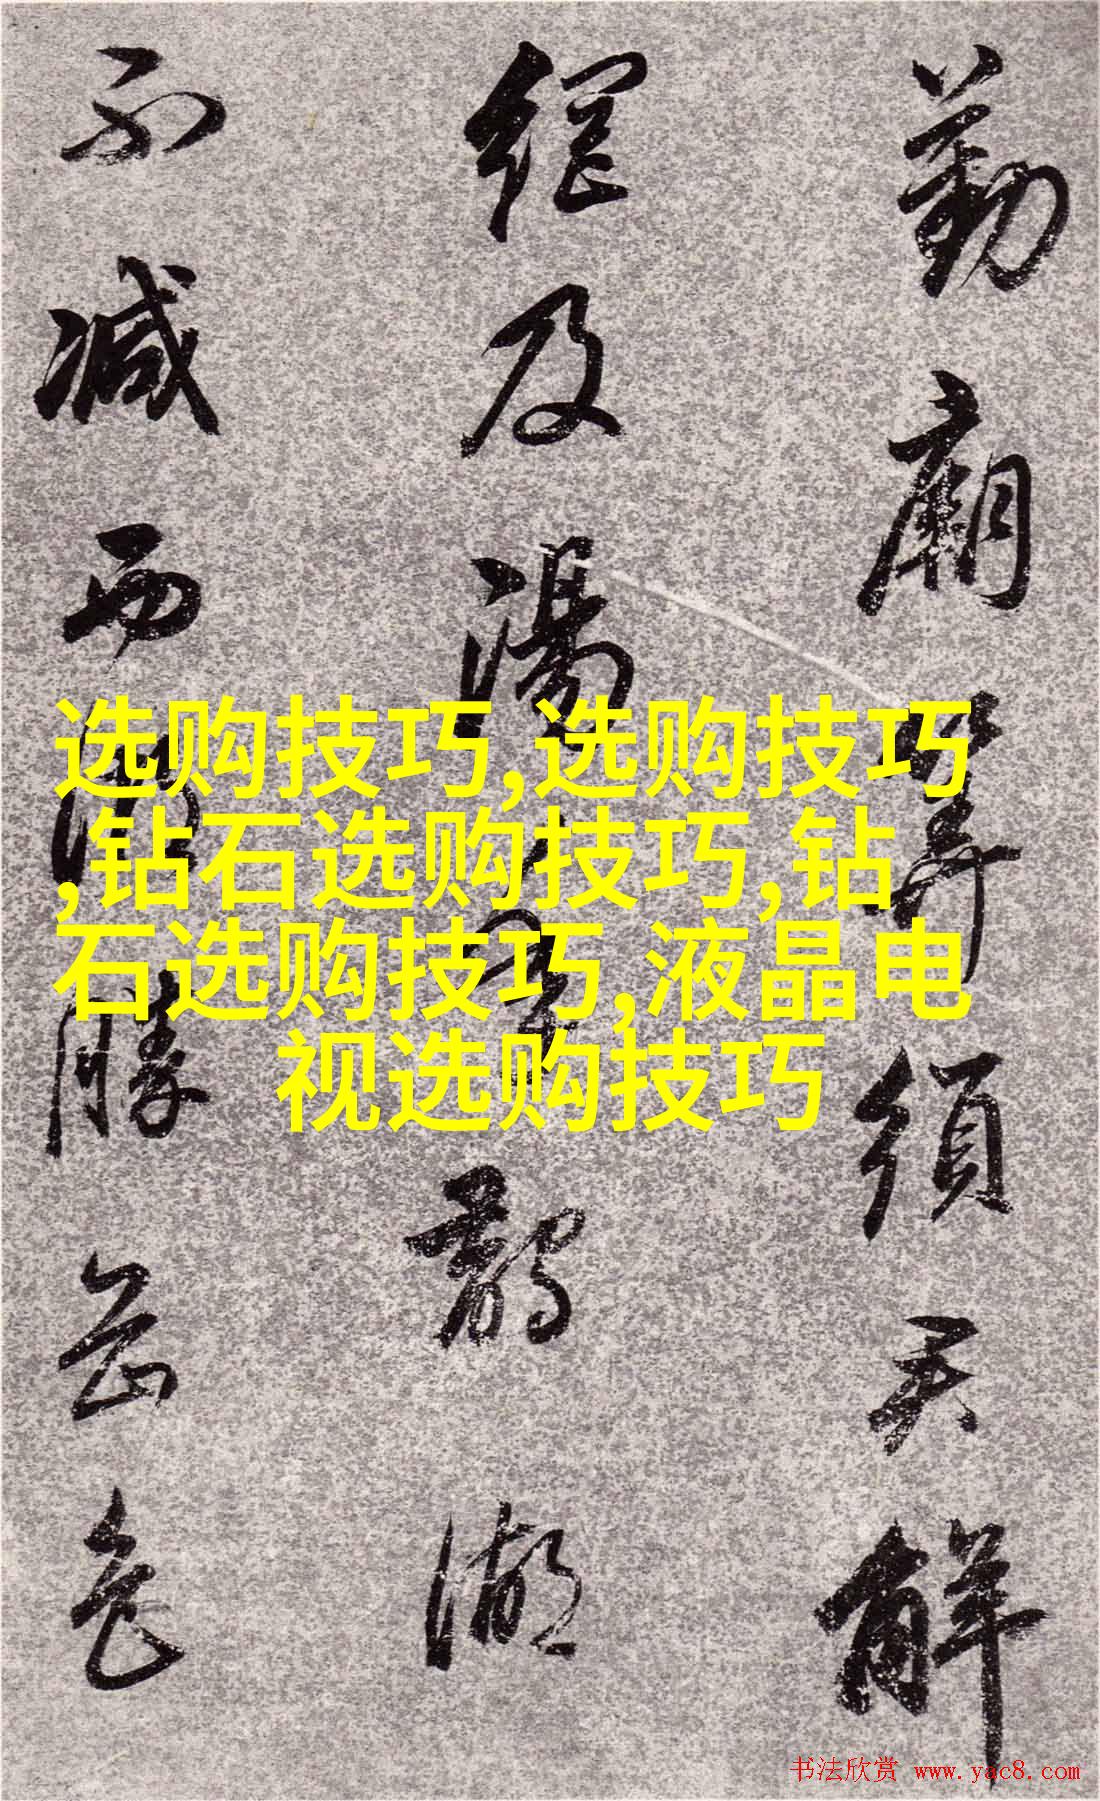 勤廟算須君解
網及湯
鵲湖
不減西湖勝
岳色
选购技巧,选购技巧
,钻石选购技巧,钻
石选购技巧,液晶电
视选购技巧
书法欣赏 www.yac8.com